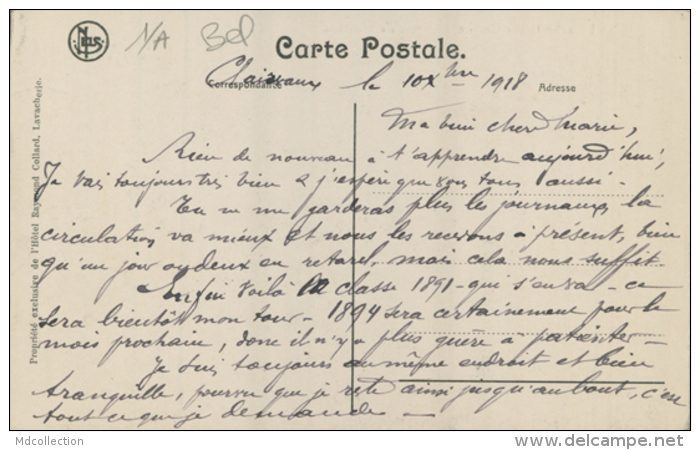 Nels
N/A Bel
Carte Postale.
Correspondance
Adresse
le 10 Xbre 1918
Ma bien chère Marie,
Rien de nouveau à t'apprendre aujourd'hui,
Je vais toujours très bien & j'espère que vous tous aussi -
Tu ne me garderas plus les journaux, la
circulation va mieux et nous les recevons à présent, bien
qu'un jour ou deux en retard, mais cela nous suffit -
Enfin voilà la classe 1891 - qui s'en va - ce
sera bientôt mon tour - 1894 sera certainement pour le
mois prochain, donc il n'y a plus guère à patienter -
Je suis toujours au même endroit et bien
tranquille, pourvu que je reste ainsi jusqu'au bout, c'en
tout ce que je demande -
Propriété exclusive de l'Hôtel Raymond Collard, Lavacherie.
Mdcollection
delcampe.net